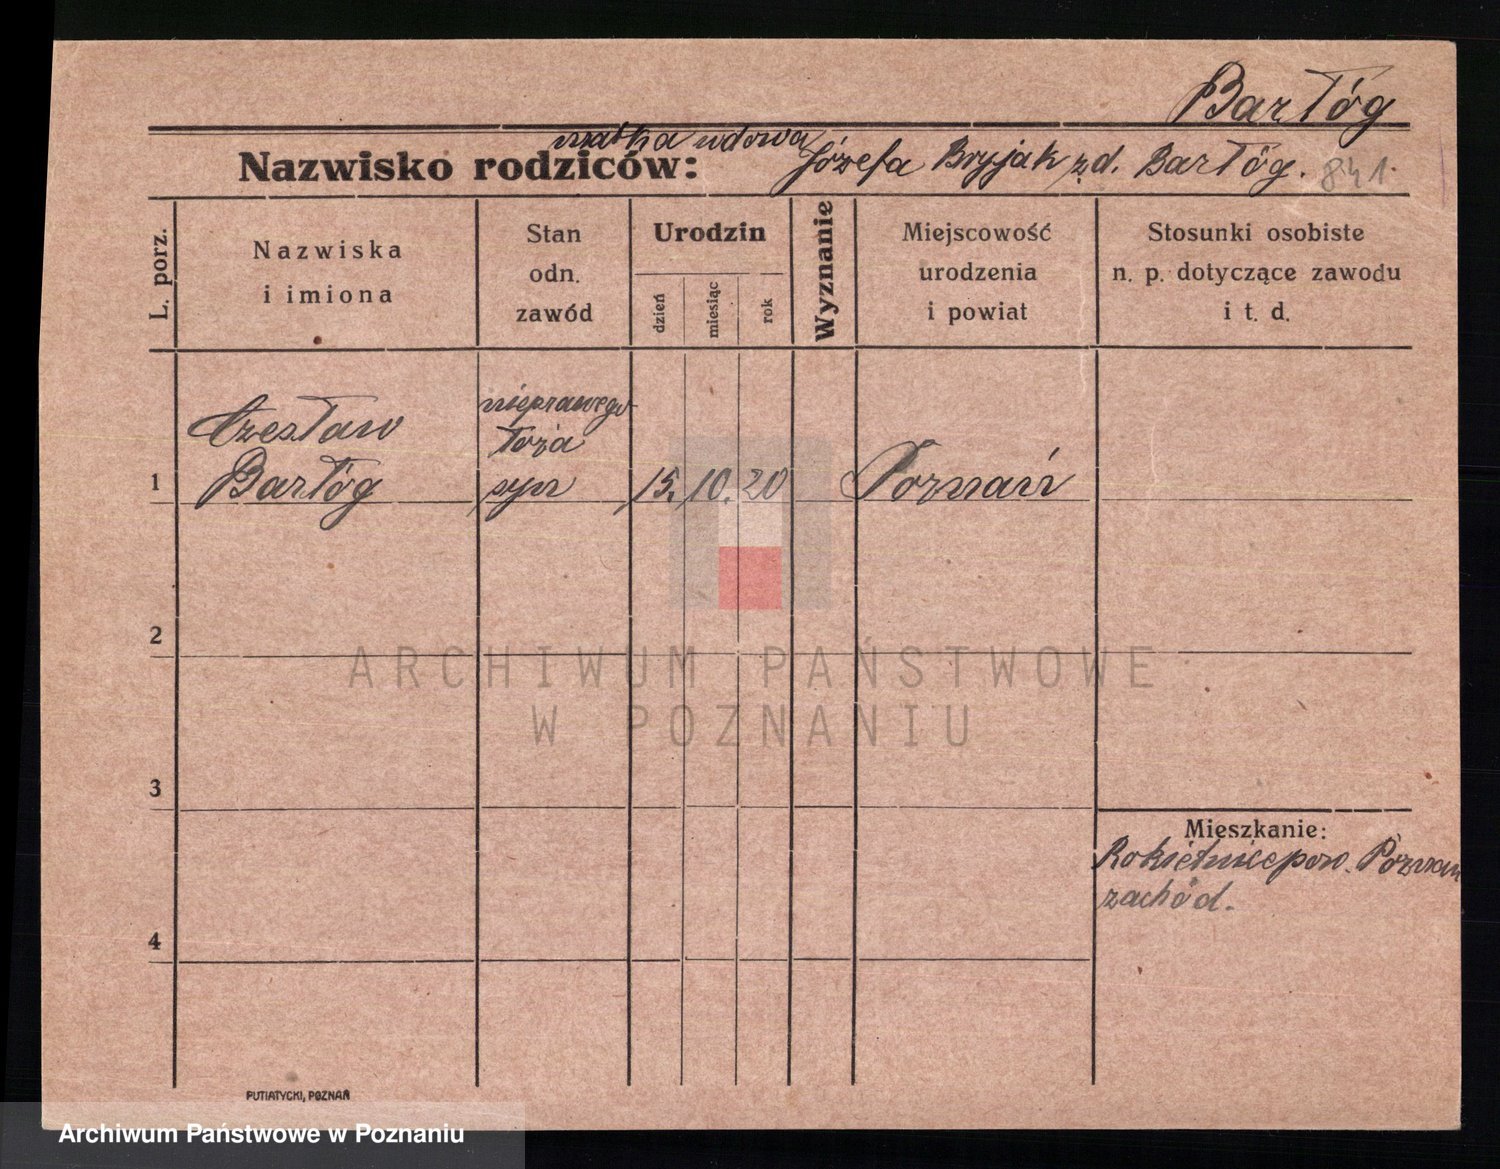 Bartóg
matka wdowa
Nazwisko rodziców: Józefa Bryjak zd. Bartóg. 841.
L. porz.
Nazwiska
i imiona
Stan
odn.
zawód
Urodzin
dzień
miesiąc
rok
Wyznanie
Miejscowość
urodzenia
i powiat
Stosunki osobiste
n. p. dotyczące zawodu
i t. d.
1
Czesław
Bartóg
nieprawego
łoża
syn
15. 10. 20
Poznań
2
3
4
Mieszkanie:
Rokietnice pow. Poznań
zachód.
PUTIATYCKI, POZNAŃ
ARCHIWUM PAŃSTWOWE
W POZNANIU
Archiwum Państwowe w Poznaniu